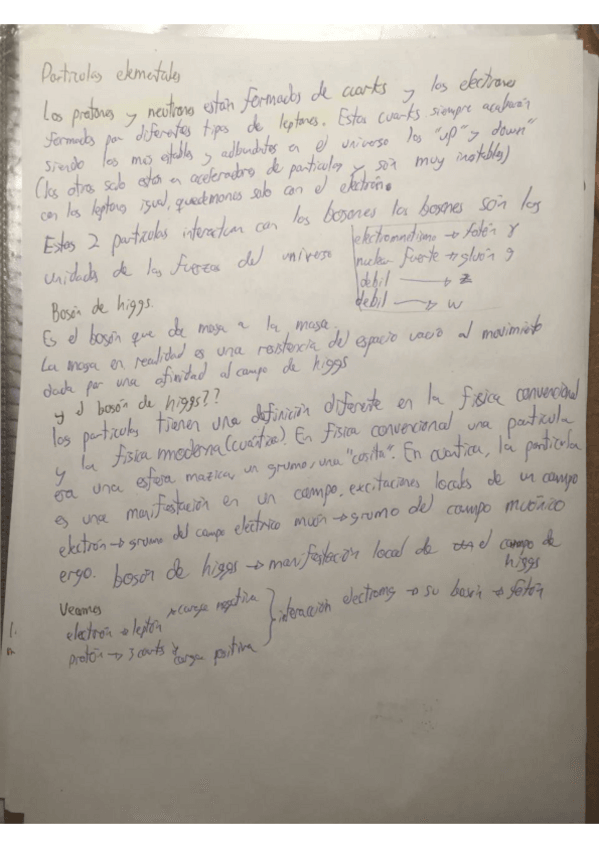 Particulas elementales
Los protones y neutrones están formados de cuarks y los electrones
formados por diferentes tipos de leptones. Estos cuarks siempre acabarán
siendo los mas estables y adbundntes en el universo los "up" y down"
(los otros solo estan en aceleradores de particulas y son muy inestables)
con los leptones igual, quedemonos solo con el electrón.
Estas 2 particulas interactuan con los bosones los bosones son las
unidades de las fuerzas del universo
electromnetismo → fotón γ
nuclear fuerte → gluón g
debil → z
debil → w
Bosón de higgs.
Es el bosón que da masa a la masa.
La masa en realidad es una resistencia del espacio vacio al movimiento
dada por una afinidad al campo de higgs
y el bosón de higgs??
las particulas tienen una definición diferente en la fisica convencional
y la fisica moderna (cuántica). En fisica convencional una particula
era una esfera maziza, un grumo, una "cosita". En cuantica, la particula
es una manifestación en un campo, excitaciones locales de un campo
electrón → grumo del campo electrico muón → grumo del campo muónico
ergo. bosón de higgs → manifestación local de el campo de
higgs
Veamos
electrón → leptón → carga negativa
protón → 3 cuarks carga positiva
interacción electromg → su bosón → fotón